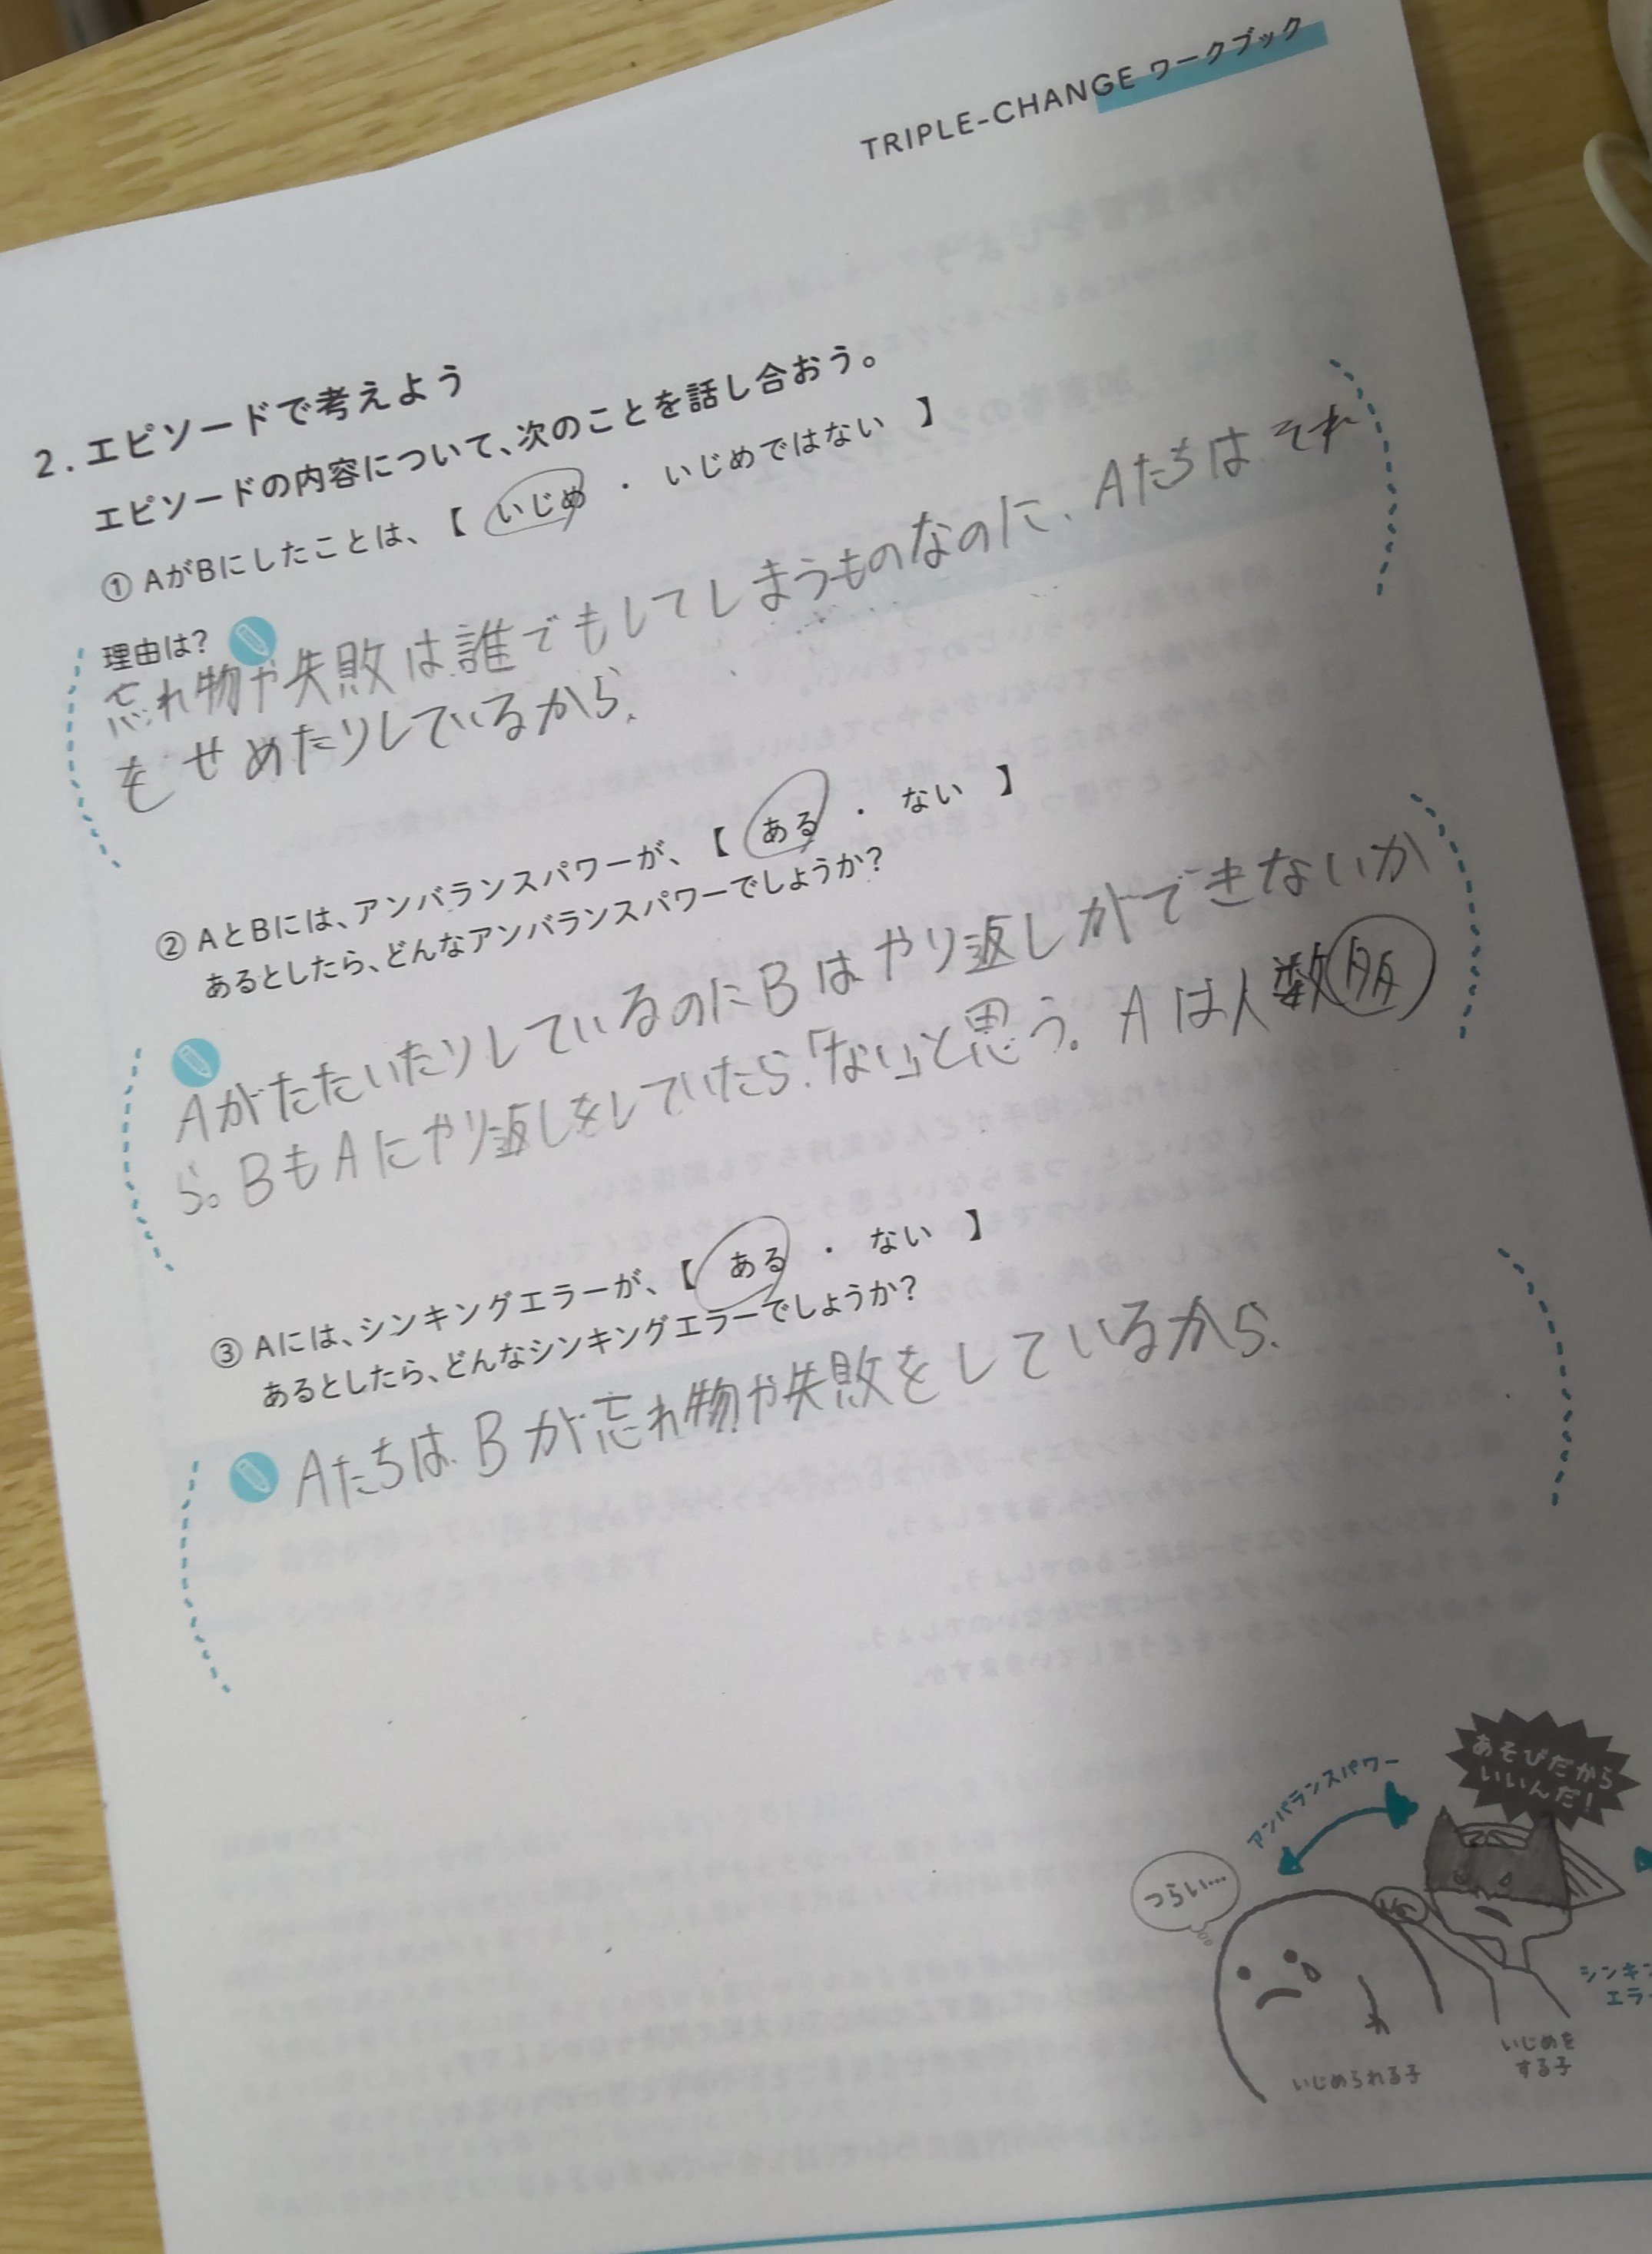 TRIPLE-CHANGE ワークブック
2. エピソードで考えよう
エピソードの内容について、次のことを話し合おう。
① AがBにしたことは、【 いじめ ・ いじめではない 】
理由は?
忘れ物や失敗は誰でもしてしまうものなのに、Aたちはそれ
をせめたりしているから、
② AとBには、アンバランスパワーが、【 ある ・ ない 】
あるとしたら、どんなアンバランスパワーでしょうか?
Aがたたいたりしているのに Bは やり返しが できないか
ら。BもAにやり返しをしていたら、「ない」と思う。Aは人数
③ Aには、シンキングエラーが、【 ある ・ ない 】
あるとしたら、どんなシンキングエラーでしょうか?
Aたちは Bが忘れ物や失敗をしているから、
あそびだから
いいんだ!
アンバランスパワー
つらい…
シンキン
エラー
いじめを
する子
いじめられる子